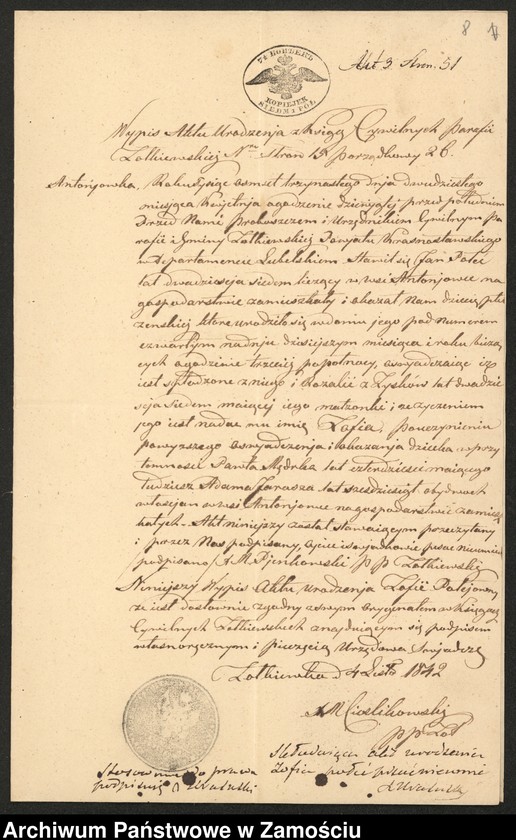 8
Akt 3. Stron. 51
7½ КОПѢЕКЪ
KOPIEJEK SIEDM I PÓŁ
Wypis Aktu Urodzenia z Księg Cywilnych Parafii
Żółkiewskiej Nro Stron 13 porządkowy 26.
Antonjowka, Roku tysiąc osmset trzynastego dnia dwudziestego
miesiąca Kwietnia o godzinie dziewiątej przed południem
Przed Nami Proboszczem i Urzędnikiem Cywilnym Pa
rafii i Gminy Żółkiewskiej Powiatu Krasnostawskiego
w Departamencie Lubelskim. Stawił się Jan Paluj
lat dwadzieścia siedem liczący w wsi Antonjowce na
gospodarstwie zamieszkały i okazał Nam dziecię płci
żenskiej które urodziło się w domu jego pod Numerem
czwartym na dniu dzisiejszym miesiąca i roku bieżą
cych o godzinie trzeciej popołnocy, oswiadczając iż
jest spłodzone z niego i Rozalii z Zysków lat dwadzie
ścia siedem mającej jego małżonki i że życzeniem
jego jest nadać mu imię Zofia, po uczynieniu
powyższego oswiadczenia i okazania dziecka w przy
tomności Pawła Mędrka lat czterdziesci mającego
tudziesz Adama Jarosza lat szesdziesiąt obydwoch
włoscian w wsi Antonjowce na gospodarstwie zamiesz
kałych. Akt niniejszy został stawającym przeczytany
i przez Nas podpisany, ojciec i swiadkowie pisać nieumieją
podpisano X M Pjenkowski P P Żółkiewski
Niniejszy Wypis Aktu urodzenia Zofii Palejowny
że jest dosłownie zgodny z swym oryginałem w Księgach
Cywilnych Żółkiewskich znajdującym się podpisem
własnoręcznym i pieczęcią Urzędową Swiadczę
Żółkiewka d 4 Listo 1842
X M Cieslikowski
p p Żoł
akt urodzenia
Stosownie do prawa
Zofia
podpisuię
Archiwum Państwowe w Zamościu